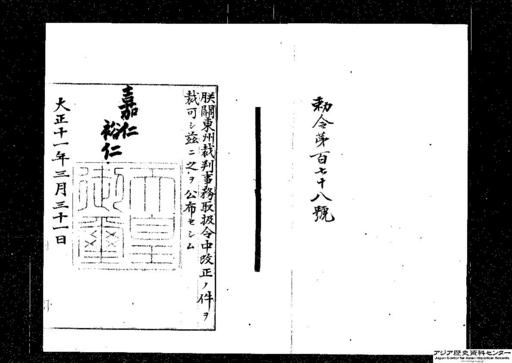 勅令第百七十八號
朕關東州裁判事務取扱令中改正ノ件ヲ
裁可シ茲ニ之ヲ公布セシム
嘉仁
裕仁
天皇
御璽
大正十一年三月三十一日
アジア歴史資料センター
Japan Center for Asian Historical Records